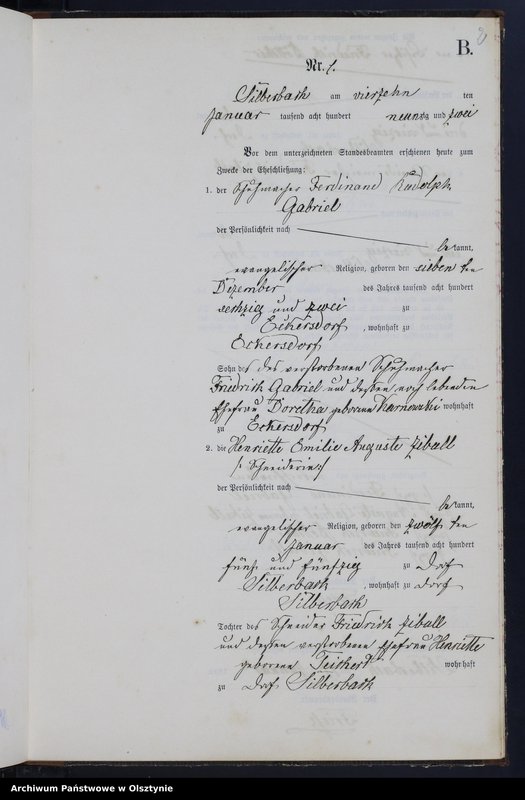 B.
Nr. 1.
Silberbach am vierzehn ten
Januar tausend acht hundert neunzig und zwei
Vor dem unterzeichneten Standesbeamten erschienen heute zum
Zwecke der Eheschließung:
1. der Schuhmacher Ferdinand Rudolph
Gabriel
der Persönlichkeit nach
bekannt,
evangelischer Religion, geboren den sieben ten
Dezember des Jahres tausend acht hundert
sechzig und zwei zu
Eckersdorf, wohnhaft zu
Eckersdorf
Sohn des des verstorbenen Schuhmacher
Friedrich Gabriel und dessen noch lebenden
Ehefrau Dorothea geborene Karnowski wohnhaft
zu Eckersdorf
2. die Henriette Emilie Auguste Ziball
/: Schneiderin :/
der Persönlichkeit nach
bekannt,
evangelischer Religion, geboren den zwölf ten
Januar des Jahres tausend acht hundert
fünf und fünfzig zu Dorf
Silberbach, wohnhaft zu Dorf
Silberbach
Tochter des Schneider Friedrich Ziball
und dessen verstorbenen Ehefrau Henriette
geborene Teichert wohnhaft
zu Dorf Silberbach
Archiwum Państwowe w Olsztynie